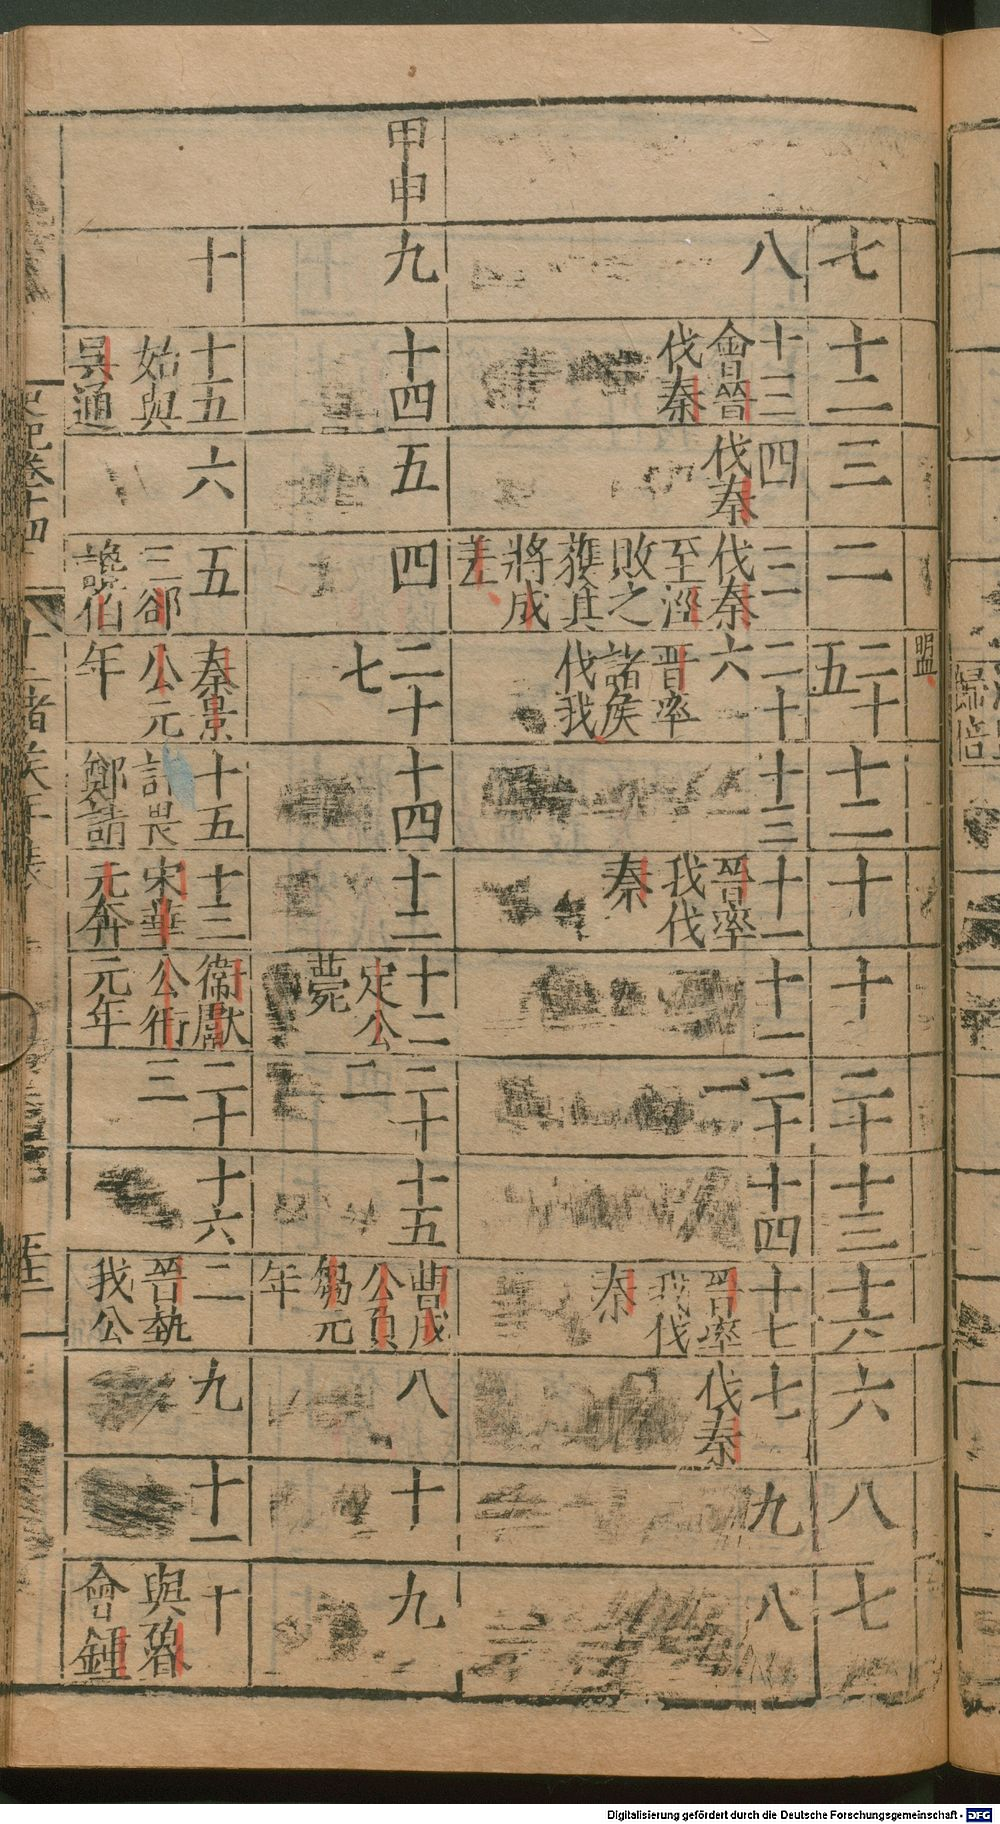 盟
七
十二
三
二
二十
五
十二
十
十
二十
十三
十六
六
八
七
八
十三
會晉
伐秦
四
伐秦
三
伐秦
至涇
敗之
獲其
將成
差
二十
六
晉率
諸侯
伐我
十三
十一
晉率
我伐
秦
十一
二十
一
十四
十七
晉率
我伐
秦
七
伐秦
九
八
甲申
九
十四
五
四
二十
七
十四
十二
十二
定公
薨
二十
二
十五
曹成
公負
芻元
年
八
十
九
十
十五
始與
吳通
六
五
三郤
讒伯
秦景
公元
年
十五
許畏
鄭請
十三
宋華
元奔
衞獻
公衎
元年
二十
三
十六
二
晉執
我公
九
十一
十
與魯
會鍾
史記卷十四
十二諸侯年表
Digitalisierung gefördert durch die Deutsche Forschungsgemeinschaft - DFG